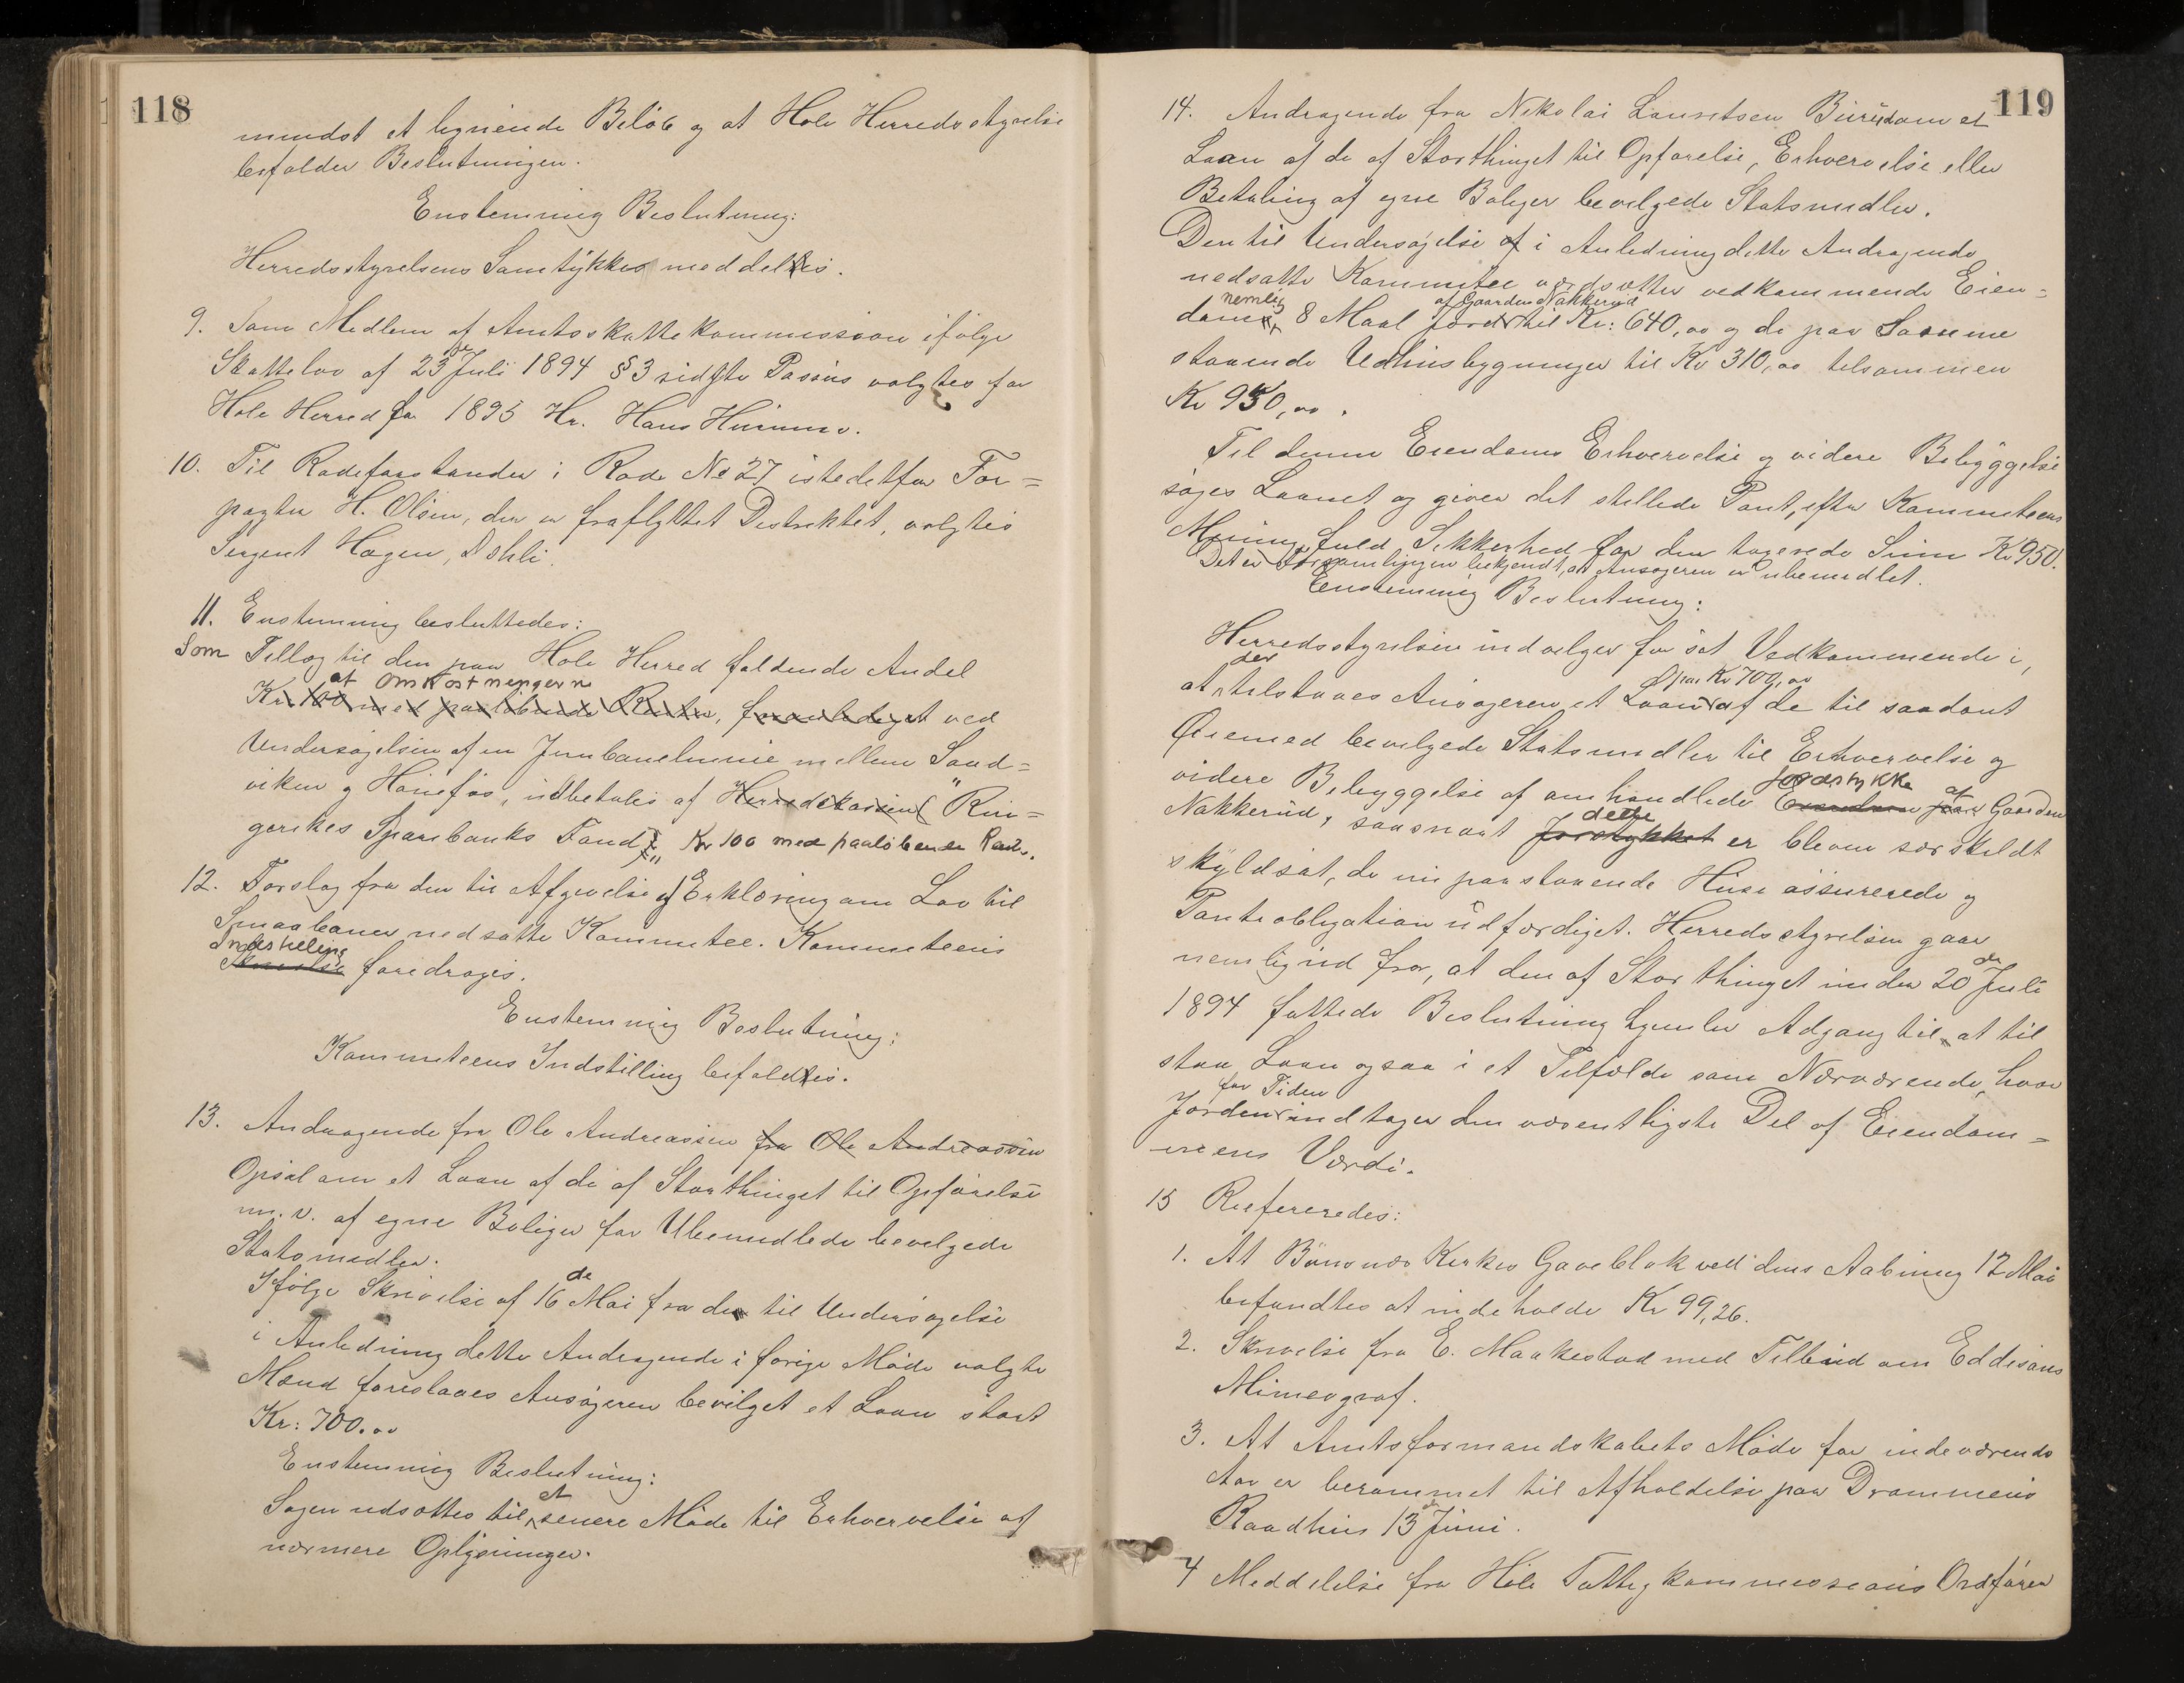 118
mindst et lignende Beløb og at Hole Herredsstyrelse
befalder Beslutningen.
Enstemmig Beslutning:
Herredsstyrelsens Samtykke meddeles.
9. Som Medlem af Amtsskattekommissionen ifølge
Skattelov af 23de Juli 1894 §3 sidste Passus valgtes for
Hole Herred for 1895 Hr. Hans
10. Til Rodeforstander i Rode No 27 istedetfor For=
pagter H. Olsen, der er fraflyttet Distriktet, valgtes
Sergent Hagen,
11. Enstemmig besluttedes:
Som Tillæg til den paa Hole Herred faldende Andel
at Omkostningerne
Kr. 100 med paaløbende Renter, foranlediget ved
Undersøgelsen af en Jernbanelinie mellem Sand=
viken og Hønefos, indbetales af Herredskassen ("Rin=
gerikes Sparebanks Fond)" Kr 100 med paaløbende Rent.
12. Forslag fra den til Afgivelse af Erklæring om Lov til
Smaabaner nedsatte Kommitee. Kommiteens
Indstilling
Skrivelse foredroges.
Enstemmig Beslutning:
Kommiteens Indstilling befaldtes.
13. Andragende fra Ole Andreassen fra Ole Andreassen
Opsal om et Laan af de af Storthinget til Opførelse
m. v. af egne Boliger for Ubemidlede bevilgede
Statsmidler.
Ifølge Skrivelse af 16de Mai fra de til Undersøgelse
i Anledning dette Andragende i forige Møde valgte
Mænd foreslaaes Ansøgeren bevilget et Laan stort
Kr: 700.00
Enstemmig Beslutning:
Sagen udsættes til et senere Møde til Erhvervelse af
nærmere Oplysninger.
119
14. Andragende fra Nikolai Lauretsen Burud om et
Laan af de af Storthinget til Opførelse, Erhvervelse eller
Betaling af egne Boliger bevilgede Statsmidler.
Den til Undersøgelse af i Anledning dette Andragende
nedsatte Kommitee værdsætter vedkommende Eien=
nemlig af Gaarden Nakkerud
dom, 8 Maal Jord til Kr: 640,00 og de paa Samme
staaende Udhusbygninger til Kr 310,00 tilsammen
Kr 950,00.
Til denne Eiendoms Erhvervelse og videre Bebyggelse
søges Laanet og giver det stillede Pant, efter Kommiteens
Mening, fuld Sikkerhed for den tagerede Sum Kr 950.
Det er Forsamlingen bekjendt, at Ansøgeren er ubemidlet.
Enstemmig Beslutning:
Herredsstyrelsen indvilger for sit Vedkommende i,
der paa Kr 700,00
at tilstaaes Ansøgeren et Laan af de til saadant
Øiemed bevilgede Statsmidler til Erhvervelse og
Jordstykke af
videre Bebyggelse af omhandlede Eiendom paa Gaarden
dette
Nakkerud, saasnart Jorstykket er bleven særskildt
skyldsat, de nu paastaaende Huse assurerede og
Panteobligation udfærdiget. Herredsstyrelsen gaar
nemlig ud fra, at den af Storthinget under 20de Juli
1894 fattede Beslutning hjemler Adgang til at til
staa Laan ogsaa i et Tilfælde som Nærværende, hvor
for Tiden
Jorden indtager den væsentligste Del af Eiendom=
mens Værdi.
15 Refereredes:
1. At Bønsnæs Kirkes Gaveblok ved dens Aabning 12 Mai
befandtes at indeholde Kr 99,26.
2. Skrivelse fra E. Maakestad med Tilbud om Eddisons
Mimeograf.
3. At Amtsformandskabets Møde for indeværende
Aar er berammet til Afholdelse paa Drammens
Raadhus 13de Juni.
4 Meddelelse fra Hole Fattigkommissions Ordfører